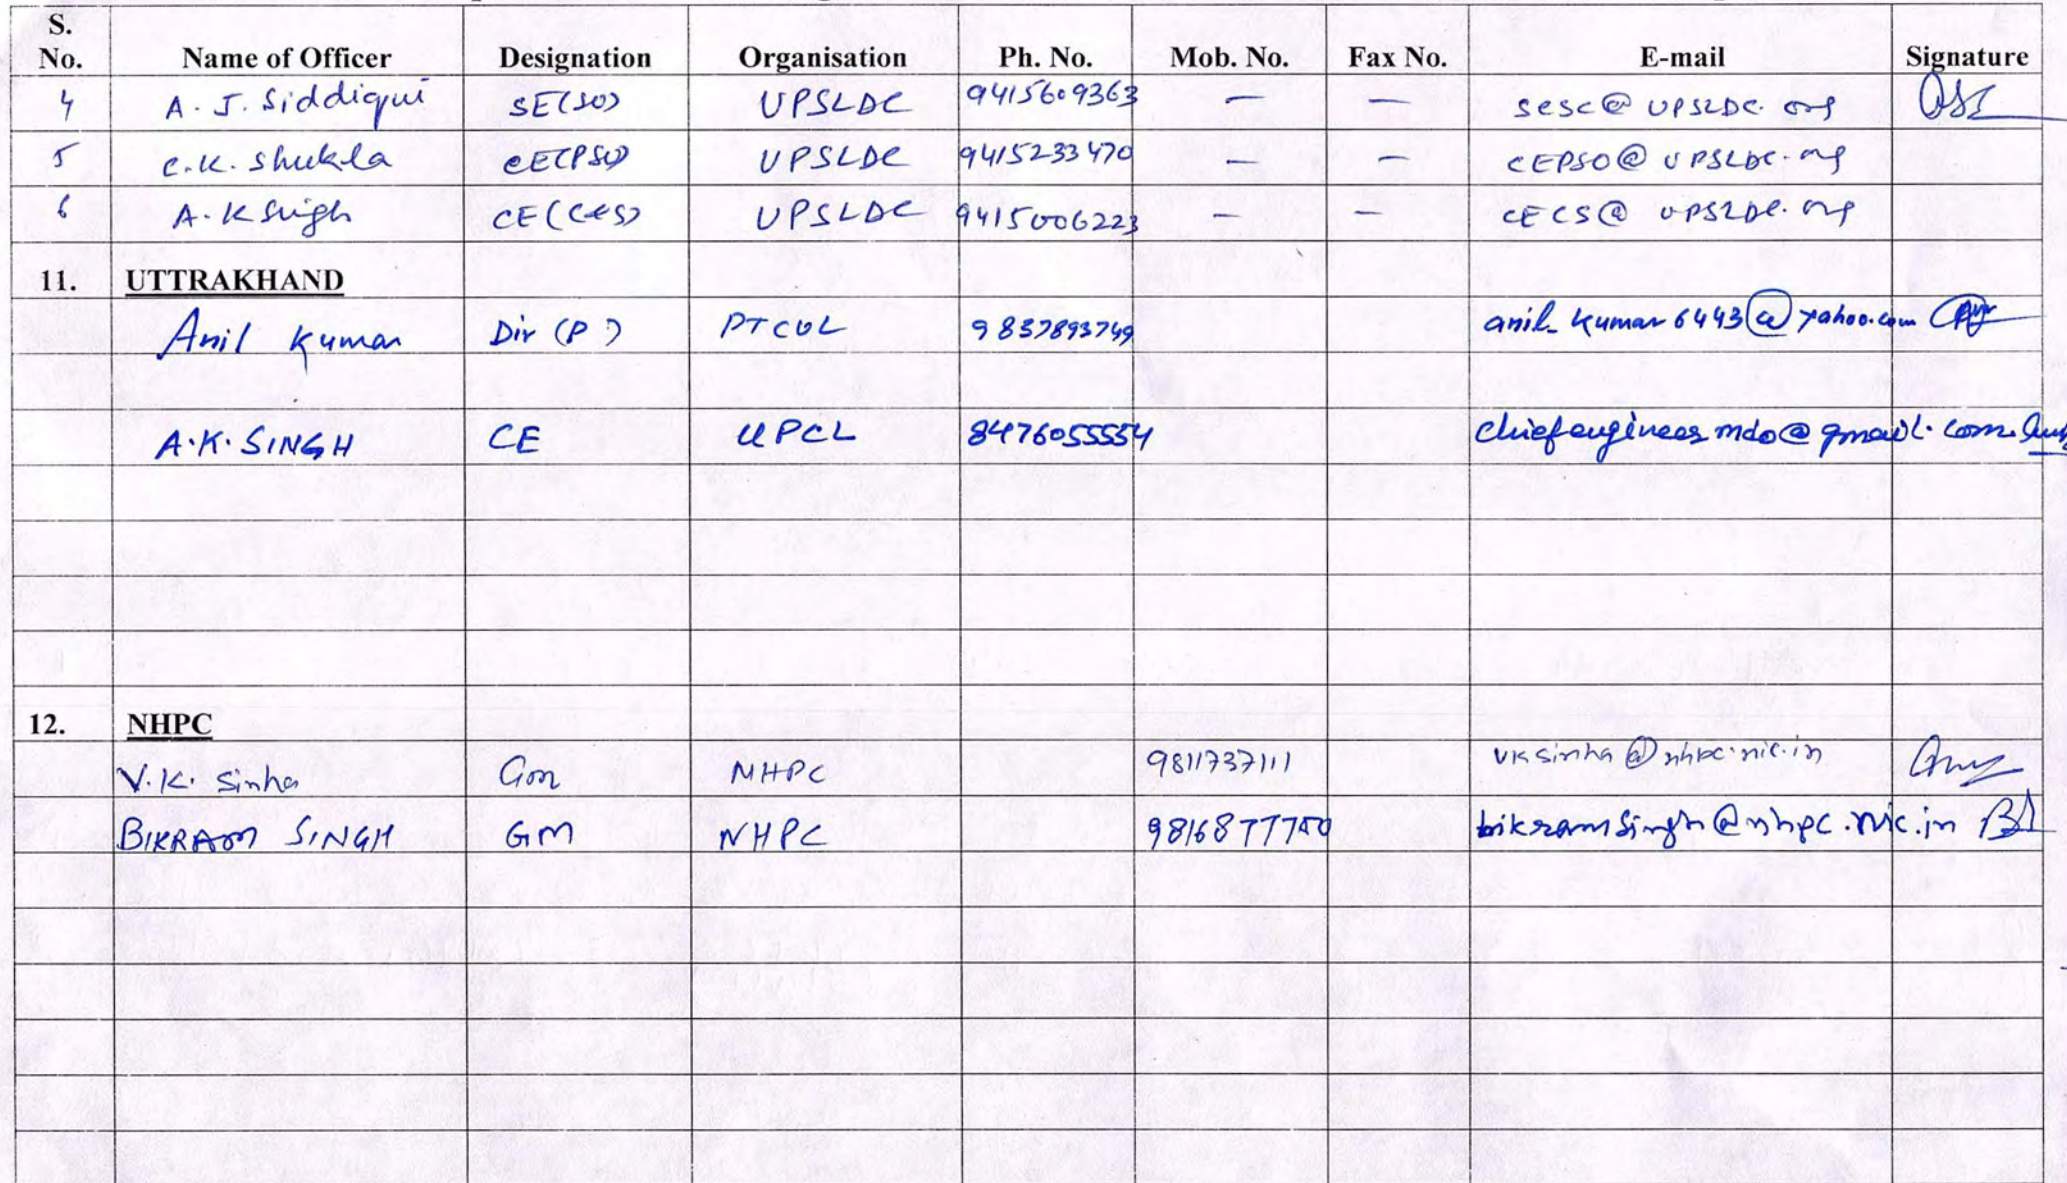 S. No. Name of Officer Designation Organisation Ph. No. Mob. No. Fax No. E-mail Signature
4 A. J. Siddiqui SE(SO) UPSLDC 9415609363 — — sesc@upsldc.org
5 C.K. Shukla CE(PSO) UPSLDC 9415233470 — — CEPSO@UPSLDC.org
6 A.K Singh CE( UPSLDC 9415006223 — — CECS@UPSLDC.org
11. UTTRAKHAND
Anil Kumar Dir (P) PTCUL 9837893749 anil_kumar6443@yahoo.com
A.K. SINGH CE UPCL 8476055554 chiefengineermdo@gmail.com
12. NHPC
V.K. Sinha Gm NHPC 9811737111 vksinha@nhpc.nic.in
BIKRAM SINGH GM NHPC bikramsingh@nhpc.nic.in